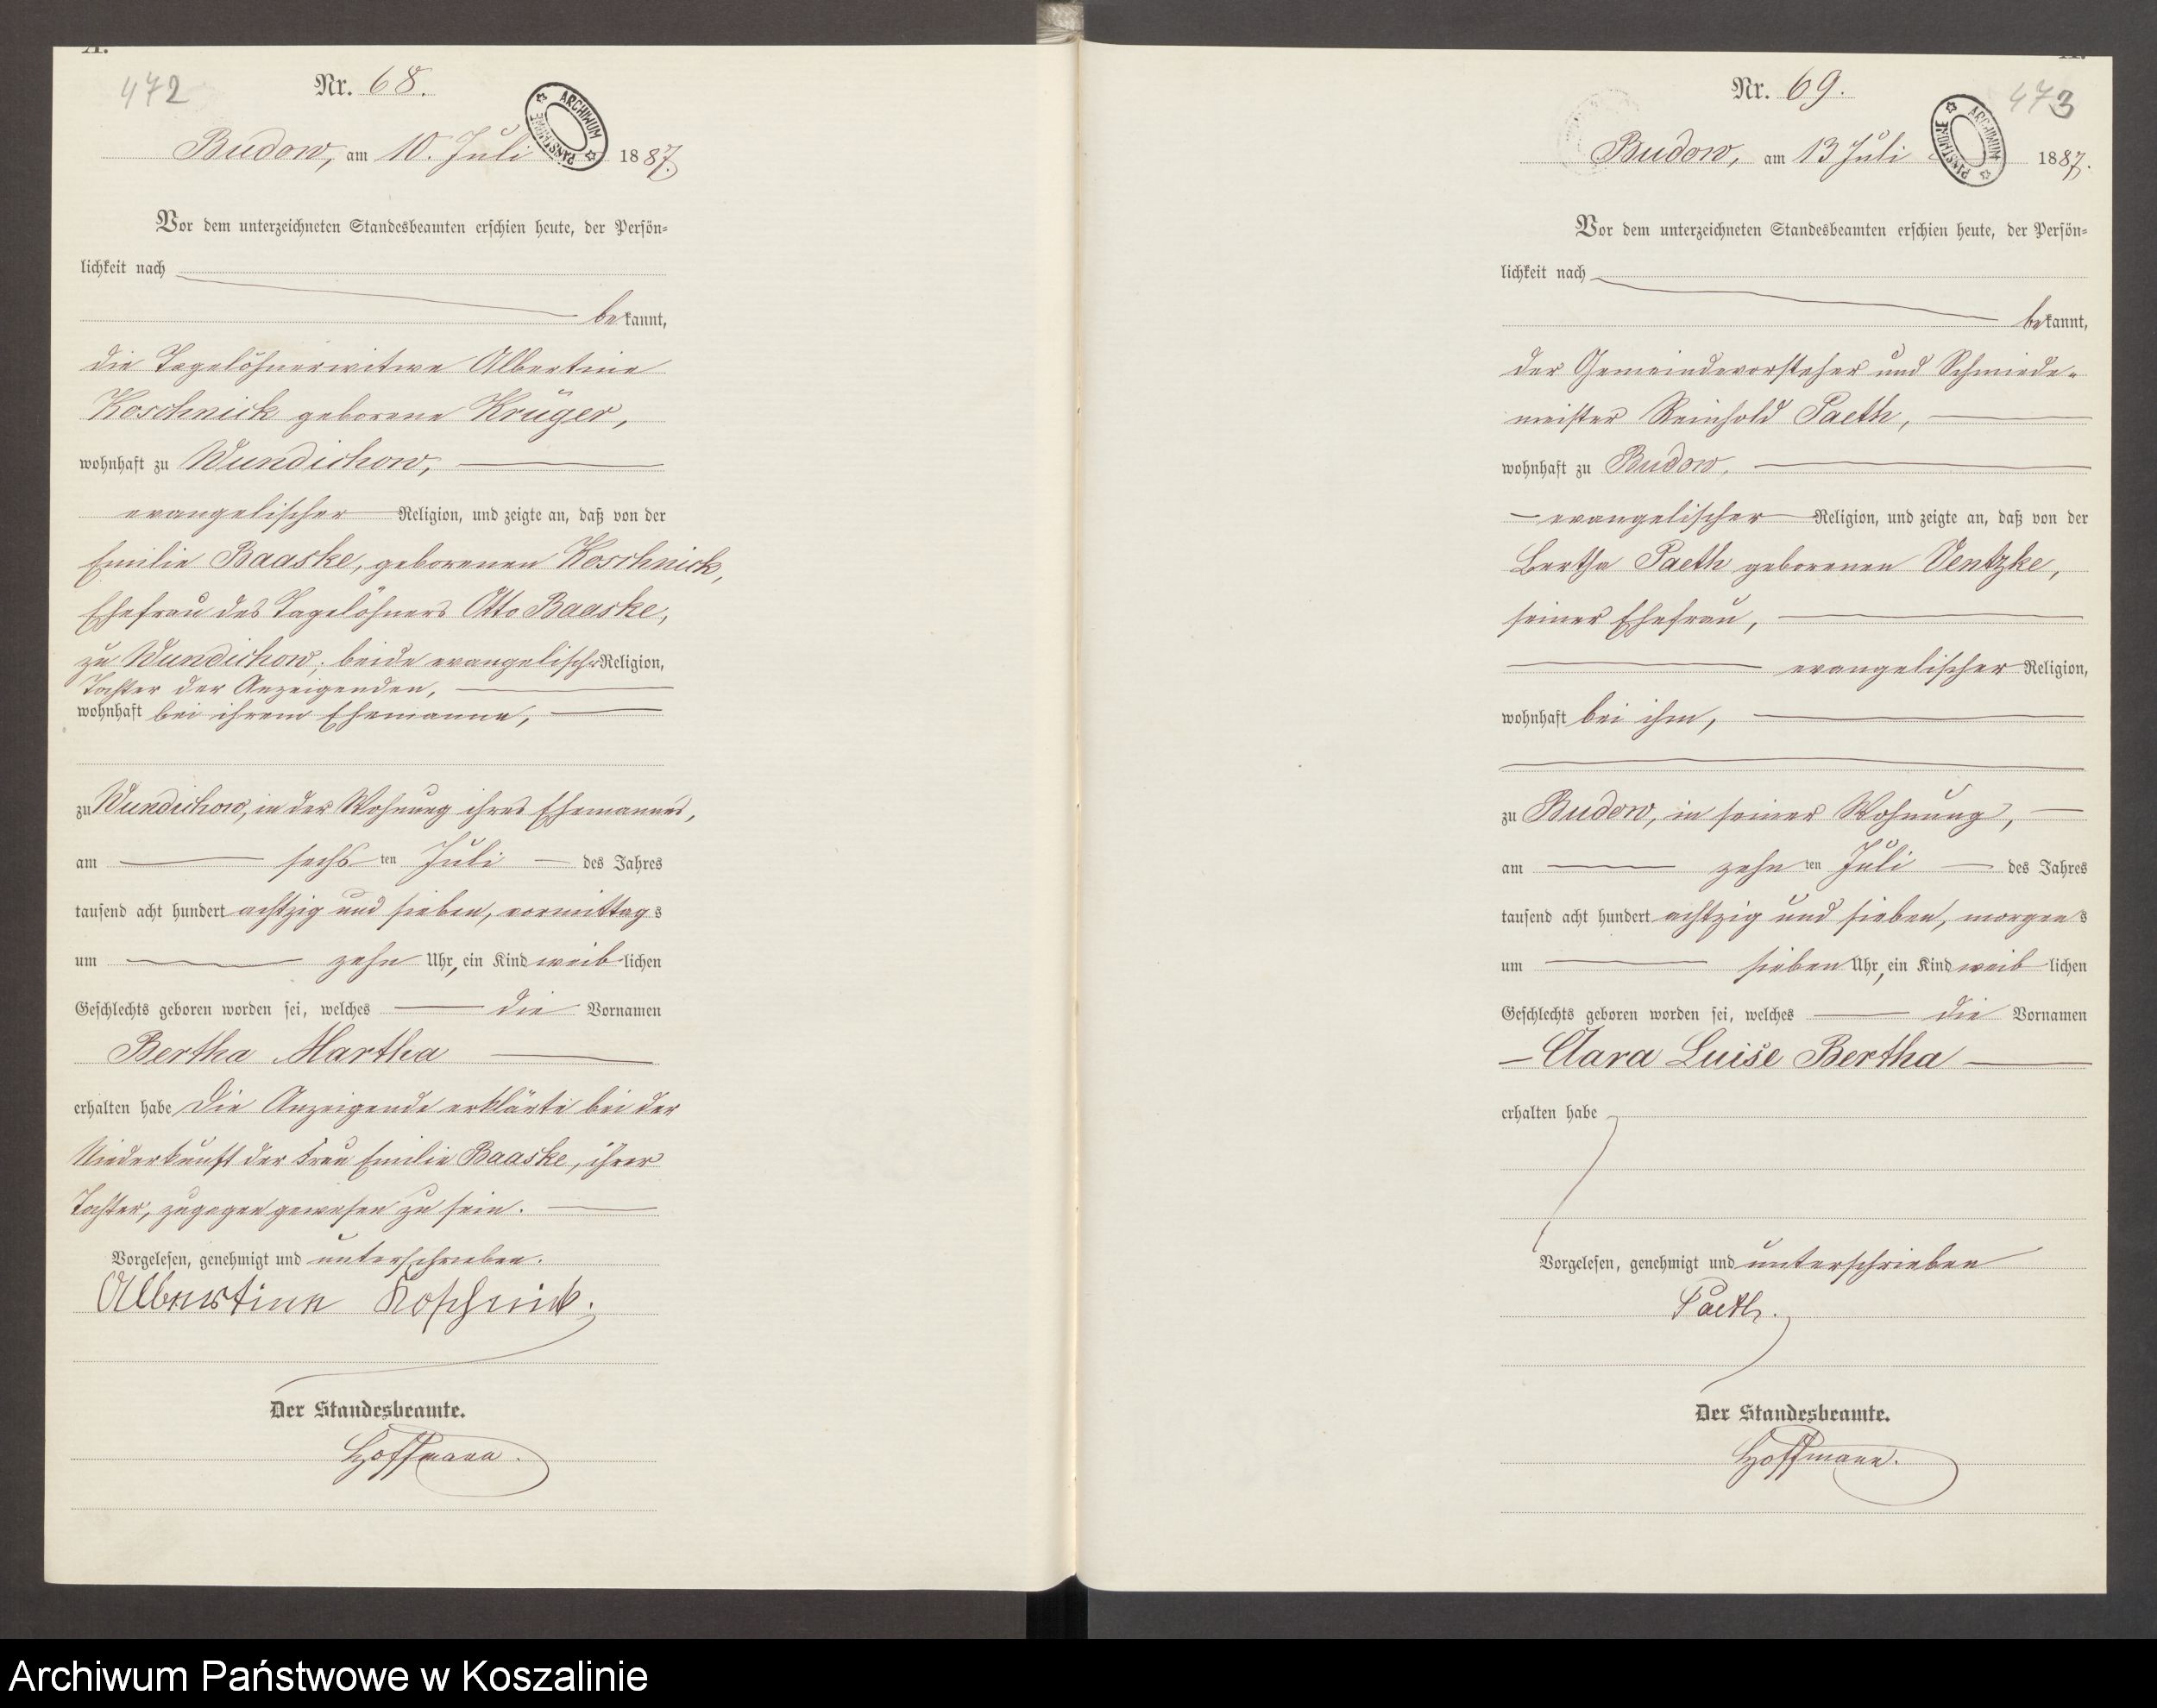 A.
472
Nr. 68.
ARCHIWUM PAŃSTWOWE
Budow, am 10. Juli 1887.
Vor dem unterzeichneten Standesbeamten erschien heute, der Persön-
lichkeit nach
bekannt,
die Tagelöhnerwitwe Albertine
Koschnick geborene Krüger,
wohnhaft zu Wundichow,
evangelischer Religion, und zeigte an, daß von der
Emilie Baaske, geborenen Koschnick,
Ehefrau des Tagelöhners Otto Baaske,
zu Wundichow, beide evangelischer Religion,
Tochter der Anzeigenden,
wohnhaft bei ihrem Ehemanne,
zu Wundichow, in der Wohnung ihres Ehemannes,
am sechsten Juli des Jahres
tausend acht hundert achtzig und sieben, vormittags
um zehn Uhr, ein Kind weiblichen
Geschlechts geboren worden sei, welches die Vornamen
Bertha Martha
erhalten habe Die Anzeigende erklärte bei der
Niederkunft der Frau Emilie Baaske, ihrer
Tochter, zugegen gewesen zu sein.
Vorgelesen, genehmigt und unterschrieben.
Albertine Koschnick.
Der Standesbeamte.
Hoffmann.
473
Nr. 69.
ARCHIWUM PAŃSTWOWE
Budow, am 13 Juli 1887.
Vor dem unterzeichneten Standesbeamten erschien heute, der Persön-
lichkeit nach
bekannt,
der Gemeindevorsteher und Schmiede-
meister Reinhold Paeth,
wohnhaft zu Budow,
evangelischer Religion, und zeigte an, daß von der
Bertha Paeth geborenen Ventzke,
seiner Ehefrau,
evangelischer Religion,
wohnhaft bei ihm,
zu Budow, in seiner Wohnung,
am zehnten Juli des Jahres
tausend acht hundert achtzig und sieben, morgens
um sieben Uhr, ein Kind weiblichen
Geschlechts geboren worden sei, welches die Vornamen
Clara Luise Bertha
erhalten habe
Vorgelesen, genehmigt und unterschrieben
Paeth.
Der Standesbeamte.
Hoffmann.
Archiwum Państwowe w Koszalinie